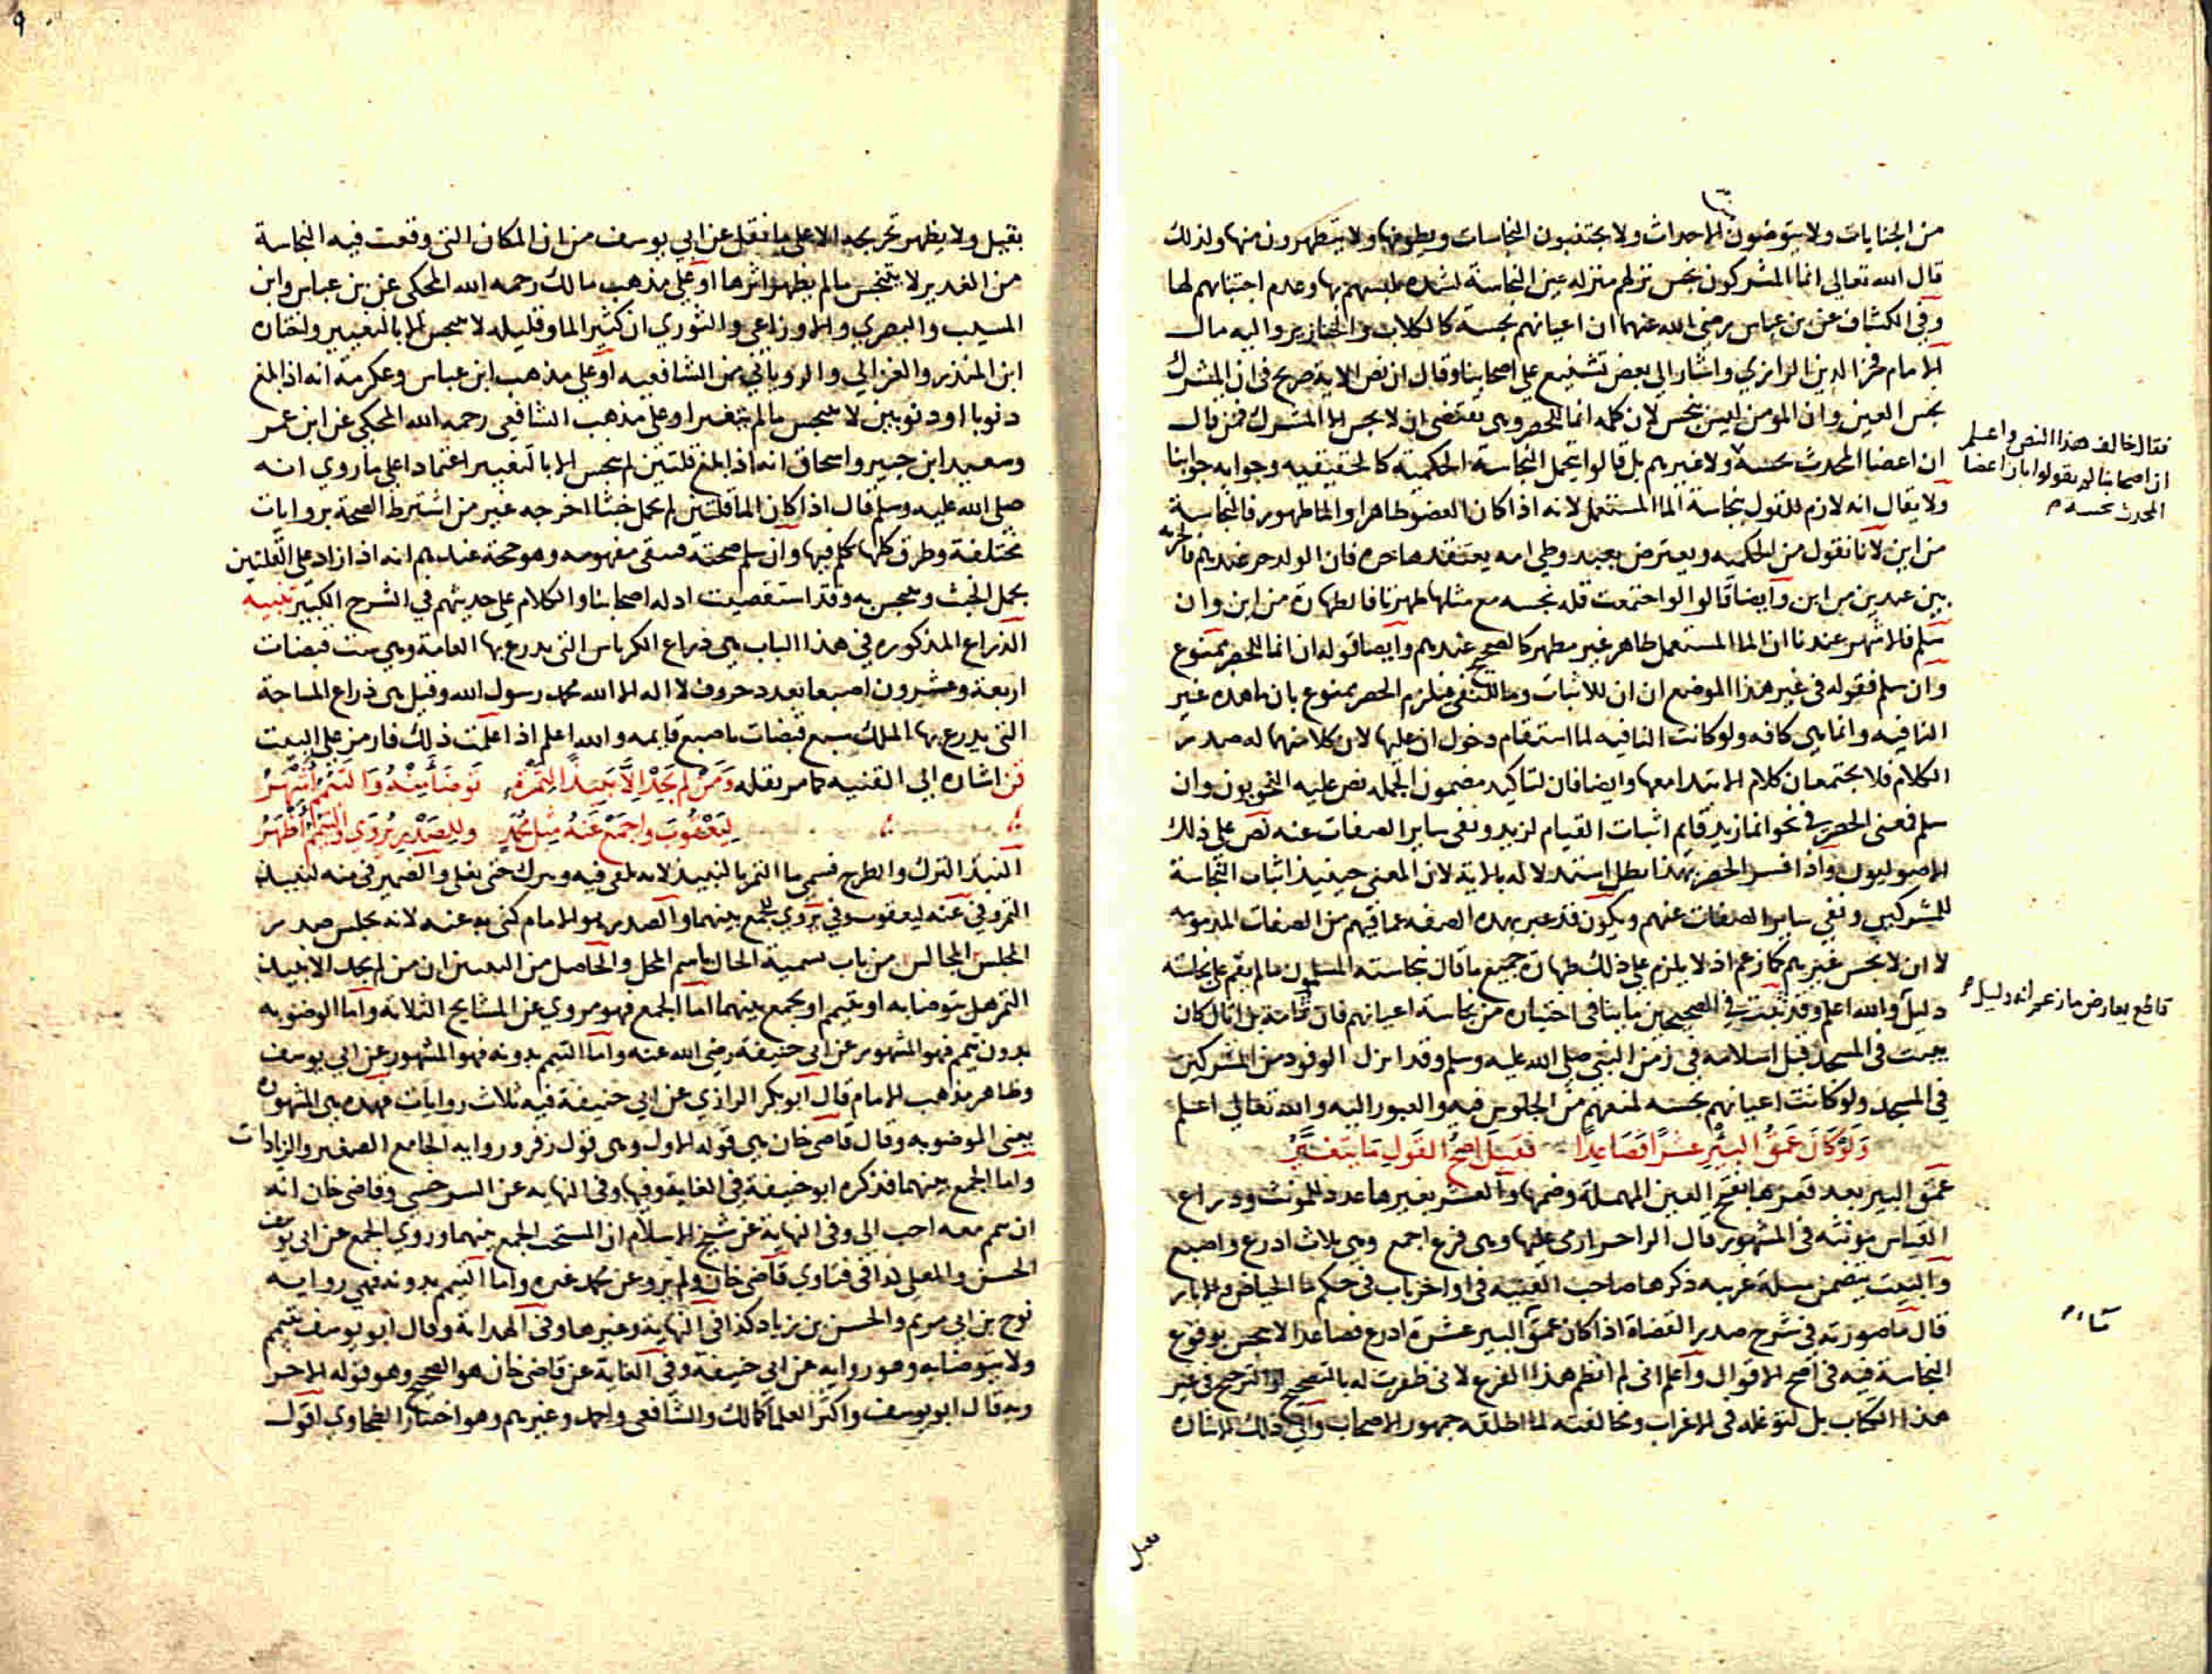 من الجنايات ولا يتوضون الاحداث ولا يجتنبون النجاسات ولا يتطهرون منها ولذلك
قال الله تعالى انما المشركون نجس نزلهم منزلة عين النجاسة لشدة تلبسهم بها وعدم اجتنابهم لها
وفي الكشاف عن بن عباس رضي الله عنهما ان اعيانهم نجسة كالكلاب والخنازير واليه مال
الامام فخر الدين الرازي واشار الى بعض تشنيع على اصحابنا وقال ان نص الاية صريح في ان المشرك
نجس العين وان المومن ليس بنجس لان كلمه انما للحصر وهي تقتضي ان لا نجس الا المشرك فمن قال
ان اعضا المحدث نجسة ولا غيرهم بل قالوا يحمل النجاسة الحكمية كالحقيقيه وجوابه جوابنا
فقال خالف هذا النص واعلم
ان اصحابنا لم يقولوا بان اعضا
المحدث نجسة
ولا يقال انه لازم للقول بنجاسة الما المستعمل لانه اذا كان العضو طاهرا والما طهور فالنجاسة
من اين لانا نقول من الحكميه ويعترض بعبد وطي امه يعتقدها حره فان الولد حر عندهم فالحريه
بين عبدين من اين وايضا قالوا لو اجتمعت قله نجسه مع مثلها طهرتا فالطهارة من اين وان
سلم فالاشهر عندنا ان الما المستعمل طاهر غير مطهر كالصحيح عندهم وايضا قوله ان انما للحصر ممنوع
وان سلم فقوله في غير هذا الموضع ان ان للاثبات وما للنفي فيلزم الحصر ممنوع بان ما هذه غير
النافيه وانما هي كافه ولو كانت النافيه لما استقام دخول ان عليها لان كلا منهما له صدر
الكلام فلا يجتمعان كلام الابتدا معها وايضا فان لتاكيد مضمون الجمله نص عليه النحويون وان
سلم فمعنى الحصر في نحو انما زيد قايم اثبات القيام لزيد ونفي ساير الصفات عنه نص على ذلك
الاصوليون واذا فسر الحصر بهذا بطل استدلاله بالاية لان المعنى حينيذ اثبات النجاسة
للمشركين ونفي ساير الصفات عنهم ويكون قد عبر بهذه الصفه عما فيهم من الصفات المذمومه
لا ان لا نجس غيرهم كما زعم اذ لا يلزم على ذلك طهارة جميع ما قال بنجاسته المسلمون ما لم يقم على نجاسته
دليل والله اعلم وقد ثبت في الصحيحين ما ينافي اختياره من نجاسة اعيانهم فان ثمامة بن اثال كان
قاطع يعارض ما زعم انه دليل
يبيت في المسجد قبل اسلامه في زمن النبي صلى الله عليه وسلم وقد انزل الوفود من المشركين
في المسجد ولو كانت اعيانهم نجسه لمنعهم من الجلوس فيه والعبور اليه والله تعالى اعلم
ولو كان عمق البير عشرا فصاعدا فقيل اصح القول ما يتغير
عمق البير بعد قعرها بفتح العين المهملة وضمها والعشر بغيرها عدد للمونث وذراع
القياس مونثه في المشهور قال الراجز ارمي عليها وهي فرع اجمع وهي ثلاث اذرع واصبع
والبيت يتضمن مسلة غريبه ذكرها صاحب القنيه في اواخر باب في حكم ما الحياض والابار
قال ما صورته في شرح صدر القضاة اذا كان عمق البير عشرة اذرع فصاعدا لا ينجس بوقوع
النجاسة فيه في اصح الاقوال واعلم اني لم انظم هذا الفرع لاني ظفرت له بالتصحيح او الترجيح في غير
هذا الكتاب بل لتوغله في الاغراب ومخالفته لما اطلقه جمهور الاصحاب والى ذلك الاشاره
بقيل ولا يظهر تخريجه الا على ما نقل عن ابي يوسف من ان المكان التي وقعت فيه النجاسة
من الغدير لا يتنجس ما لم يظهر اثرها او على مذهب مالك رحمه الله المحكي عن بن عباس وابن
المسيب والبصري والاوزاعي والثوري ان كثير الما وقليله لا ينجس الا بالتغيير واختاره
ابن المنذر والغزالي والروياني من الشافعيه او على مذهب ابن عباس وعكرمة انه اذا بلغ
دنوبا او دنوبين لا ينجس ما لم يتغير او على مذهب الشافعي رحمه الله المحكي عن ابن عمر
وسعيد ابن جبير واسحاق انه اذا بلغ قلتين لم ينجس الا بالتغيير اعتمادا على ما روي انه
صلى الله عليه وسلم قال اذا كان الما قلتين لم يحمل خبثا اخرجه غير من اشترط الصحة بروايات
مختلفة وطرق كلها تكلم فيها وان سلم صحته فيبقى مفهومه وهو حجة عندهم انه اذا زاد على القلتين
يحمل الخبث وينجس به وقد استقصيت ادله اصحابنا والكلام على حديثهم في الشرح الكبير تنبيه
الذراع المذكوره في هذا الباب هي ذراع الكرباس التي يدرع بها العامة وهي ست قبضات
اربعة وعشرون اصبعا بعدد حروف لا اله الا الله محمد رسول الله وقيل هي ذراع المساحة
التي يدرع بها الملك سبع قبضات باصبع قايمه والله اعلم اذا علمت ذلك فارمز على البيت
قن اشاره الى القنيه كما مر نقله ومن لم يجد الا نبيذا لتمرة توضأ منه والتيمم اشهر
ليعقوب واجمع عنه مثل محمد وللصدر يروى والتيمم اظهر
النبذ الترك والطرح فسمي ما التمر بالنبيذ لانه يلقى فيه ويترك حتى يغلي والضمير في منه لنبيذ
التمر وفي عنه ليعقوب وفي يروى للجمع بينهما والصدر هو الامام كنى به عنه لانه يجلس صدر
المجلس المجالس من باب تسمية الحال باسم المحل والحاصل من البيتين ان من لم يجد الا نبيذ
التمر هل يتوضا به او يتيمم او يجمع بينهما اما الجمع فهو مروي عن المشايخ الثلاثه واما الوضو به
بدون تيمم فهو المشهور عن ابي حنيفة رضي الله عنه واما التيمم بدونه فهو المشهور عن ابي يوسف
وظاهر مذهب الامام قال ابو بكر الرازي عن ابي حنيفة فيه ثلاث روايات فهذه هي المشهوره
يعني الوضو به وقال قاضي خان هي قوله الاول وهي قول زفر ورواية الجامع الصغير والزيادات
واما الجمع بينهما فذكره ابو حنيفة في الغاية وفيها وفي النهايه عن السرخسي وقاضي خان انه
ان تيمم معه احب الي وفي النهاية عن شيخ الاسلام ان المستحب الجمع بينهما وروي الجمع عن ابي يوسف
الحسن والمعلى كذا في فتاوي قاضي خان ولم يرو عن محمد غيره واما التيمم بدونه فهي رواية
نوح بن ابي مريم والحسن بن زياد كذا في النهاية وغيرها وفي الهداية وقال ابو يوسف يتيمم
ولا يتوضا به وهو رواية عن ابي حنيفة وفي الغاية عن قاضي خان هو الصحيح وهو قوله الاخر
وبه قال ابو يوسف واكثر العلما كمالك والشافعي واحمد وغيرهم وهو اختيار الطحاوي اقول